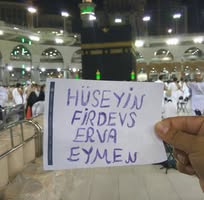 HÜSEYİN
FİRDEVS
ERVA
EYMEN